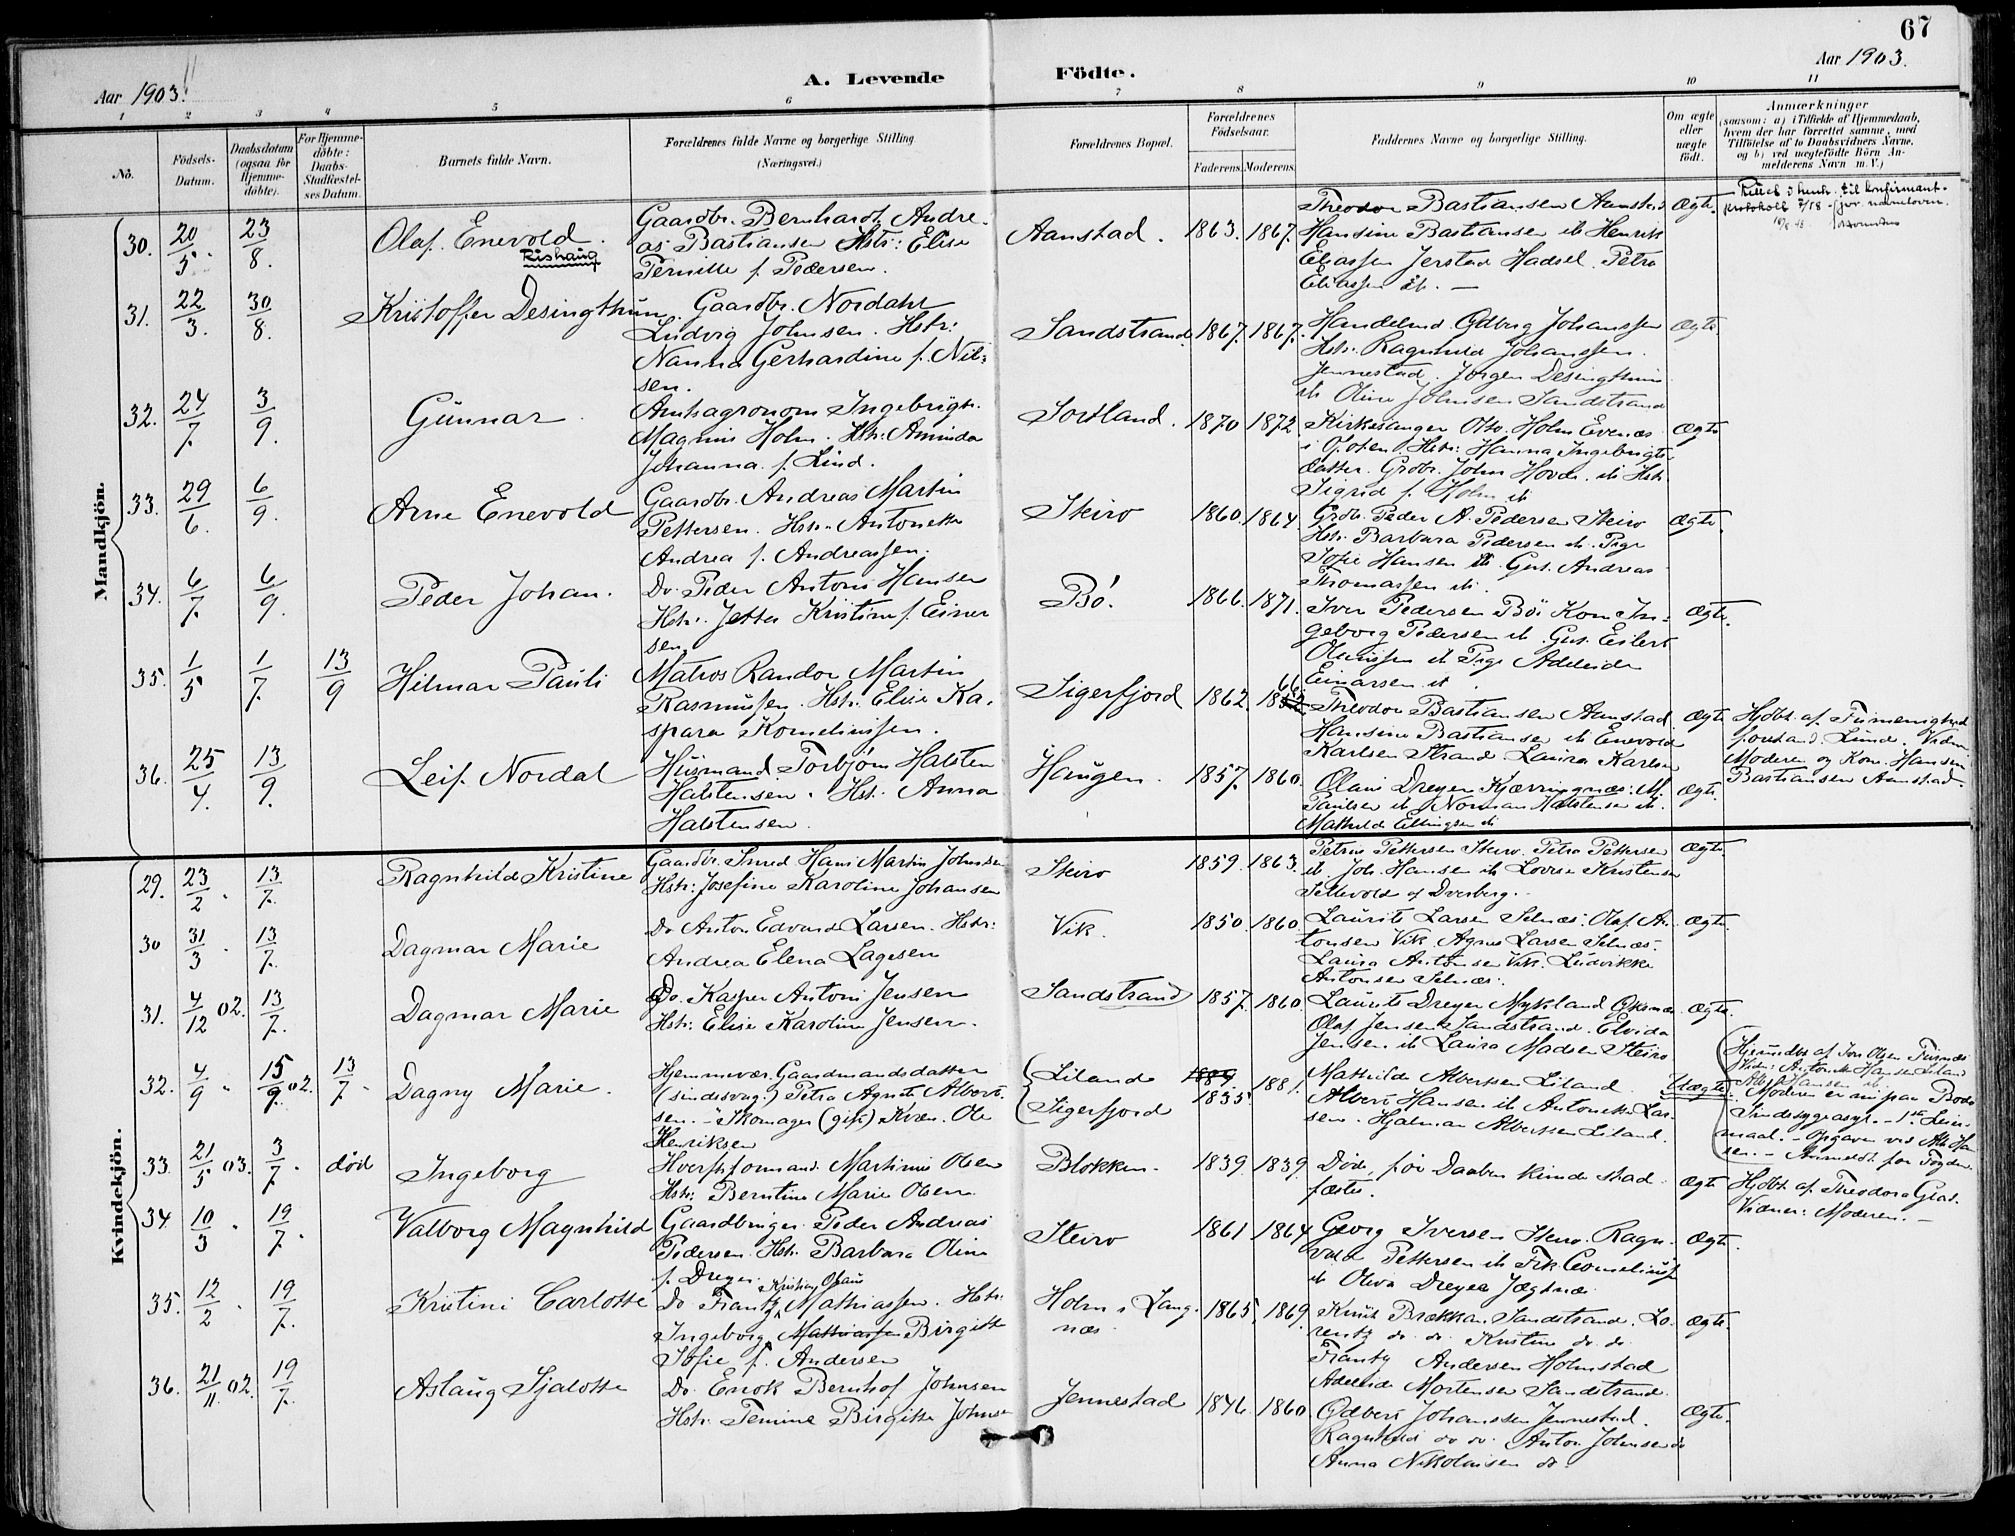 67
Aar 1903.
A. Levende
Födte.
Aar 1903.
1
2
3
4
5
6
7
8
9
10
11
No.
Födsels-
Datum.
Daabsdatum
(ogsaa for
Hjemme-
döbte).
For Hjemme-
döbte:
Daabs-
Stadfæstel-
ses Datum.
Barnets fulde Navn.
Forældrenes fulde Navne og borgerlige Stilling.
(Næringsvei.)
Forældrenes Bopæl.
Forældrenes
Födselsaar.
Faderens.
Moderens.
Faddernes Navne og borgerlige Stilling.
Om ægte
eller
uægte
födt.
Anmærkninger
(saasom: a) i Tilfælde af Hjemmedaab,
hvem der har forrettet samme, med
Tilföielse af to Daabsvidners Navne,
og b) ved uægtefödte Börn An-
melderens Navn m. V.)
Mandkjön.
30. 20/5. 23/8. Olaf Enevold. Rishaug
Gaardbr. Bernhardt Andre-
as Bastiansen Hstr: Elise
Pernille f. Pedersen.
Aanstad. 1863. 1867.
Theodor Bastiansen Aanstad
Hansine Bastiansen ib Henrik
Eliassen Jerstad Hadsel. Petra
Eliassen ib. —
Ægte.
31. 22/3. 30/8. Kristoffer Desingthun.
Gaardbr. Nordahl
Ludvig Johnsen. Hstr:
Nanna Gerhardine f. Nil-
sen.
Sandstrand. 1867. 1867.
Handelsmd. Odberg Johanssen
Hstr. Ragnhild Johanssen.
Jennestad. Jørgen Desingthun
ib Oline Johnsen Sandstrand
Ægte
32. 24/7. 3/9. Gunnar.
Amtsagronom Ingebrigt.
Magnus Holm. Hstr: Aminda
Johanna f. Lind.
Sortland. 1870 1872.
Kirkesanger Otto Holm Evenæs
i Ofoten. Hstr: Hanna Ingebrigts
datter. Grdbr. John Hovde. ib Hstr
Sigrid f. Holm ib
Ægte
33. 29/6. 6/9. Arne Enevold
Gaardbr. Andreas Martin
Pettersen. Hstr. Antonette
Andrea f. Andreassen.
Steiro 1860. 1864.
Grdb. Peder A. Pedersen Steiro
Hstr. Barbara Pedersen ib. Pige
Sofie Hansen ib. Gut. Andreas
Thomassen ib.
Ægte.
34. 6/7. 6/9. Peder Johan.
Do. Peder Antoni Hansen
Hstr. Jetta Kristine f. Einer
sen.
Bö. 1866. 1871.
Iver Pedersen Böi Kone In-
geborg Pedersen ib. Gut. Eilert
Olaussen ib Pige Adeleida
Einarsen ib.
Ægte.
35. 1/5 1/7. 13/9 Hilmar Pauli
Matros Randor Martin
Rasmussen. Hstr. Elise Ka-
spara Korneliussen.
Sigerfjord 1862. 66
Theodor Bastiansen Aanstad
Hansine Bastiansen ib Enevold
Karlsen Strand Laura Karlsen
Ægte
Hjdbt. af
Lund. Vidner
Moderen og Kone Hansine
Bastiansen Aanstad.
36. 25/4. 13/9. Leif Nordal
Husmand Torbjørn Halsten
Halstensen. Hstr. Anna
Halstensen.
Haugen. 1857. 1860.
Olaus Dreyer Kjærringnæs. M.
Paulsen ib Norman Halstensen ib.
Mathilde Ellingsen ib
Ægte.
Kvindekjön.
29. 23/2. 13/7. Ragnhilde Kristine
Gaardbr. Smed Hans Martin Johnsen
Hstr: Josefine Karoline Johansen
Steiro 1859. 1863.
Petrus Pettersen Steiro. Petra Pettersen
ib. Joh. Hansen ib Lovise Kristensen
Selbevold af Dverberg.
Ægte.
30 31/3. 13/7. Dagmar Marie
Do Anton Edvard Larsen. Hstr:
Andrea Elena Lagesen
Vik. 1850 1860.
Laurits Larsen Selnæs. Olaf An-
tonsen Vik. Agnes Larsen Selnæs.
Laura Antonsen Vik. Ludvikke
Antonsen Selnæs.
Ægte.
31. 4/12 02. 13/7. Dagmar Marie
Do. Kasper Antoni Jensen
Hstr: Elise Karoline Jensen.
Sandstrand 1857. 1860.
Laurits Dreyer Mykland Øksnæs.
Olaf Jensen Sandstrand. Elvida
Jensen ib Laura Madsen Steiro
Ægte.
32. 4/9. 15/9 02. 13/7. Dagny Marie.
Hjemmevær. Gaardmandsdatter
(sindssvag.) Petra Agnete Albert-
sen. - Skomager (gift) Kvæn. Ole
Henriksen
Liland
Sigerfjord
1889. 1835 1881.
Mathilde Albertsen Liland.
Albert Hansen ib Antonette Lar-
sen. Hjalmar Albertsen Liland.
Uægte.
Moderen er nu paa Bodø
Sindssygeasyl. - 1ste Leier-
maal. - Opgaven ved Alb. Han-
sen. -
33. 21/5 03. 3/7. död Ingeborg
Martinus Olsen
Hstr: Berntine Marie Olsen
Blokken. 1839. 1839.
Döde, før Daaben kunde stad-
fæstes.
Ægte
Hjdbt. af Theodora
Vidner: Moderen. —
34. 10/3. 19/7. Valborg Magnhild
Gaardbruger Peder Andreas
Pedersen. Hstr. Barbara Oline
f. Dreyer.
Steiro 1861 1864
Georg Iversen Steiro. Ragn-
vald Pettersen ib Frk Corneliussen
ib Oliva Dreyer Jægtnæs.
Ægte.
35. 12/2. 19/7. Kristine Carlotte
Kristian Olaus
Do Frantz Mathiassen. Hstr.
Ingeborg Mathiassen Birgitte
Sofie f. Andersen
Holm i Lang-
næs
1865. 1869.
Knut Brækkan Sandstrand. Lo-
rentz do do. Kristine do. do
Frantz Andersen Holmstad
Adeleide Mortensen Sandstrand.
Ægte.
36. 21/11 02. 19/7. Aslaug Sjalotte
Do. Enok Bernhof Johnsen
Hstr. Birgitte Johnsen
Jennestad 1846. 1860.
Odbert Johanssen Jennestad.
Ragnhild do do. Anton Johnsen do
Anna Nikolaisen do.
Ægte.